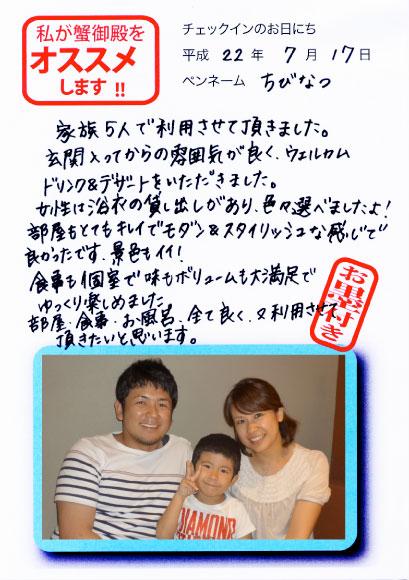 私が蟹御殿を
オススメ
します!!
チェックインのお日にち
平成 22 年 7 月 17 日
ペンネーム ちびなつ
家族5人で利用させて頂きました。
玄関入ってからの雰囲気が良く、ウェルカム
ドリンク&デザートをいただきました。
女性は浴衣の貸し出しがあり、色々選べましたよ!
部屋もとてもキレイでモダン&スタイリッシュな感じで
良かったです、景色もイイ!
食事も個室で味もボリュームも大満足で
ゆっくり楽しめました。
部屋・食事・お風呂、全て良く、又利用させて
頂きたいと思います。
お墨付き
DIAMOND